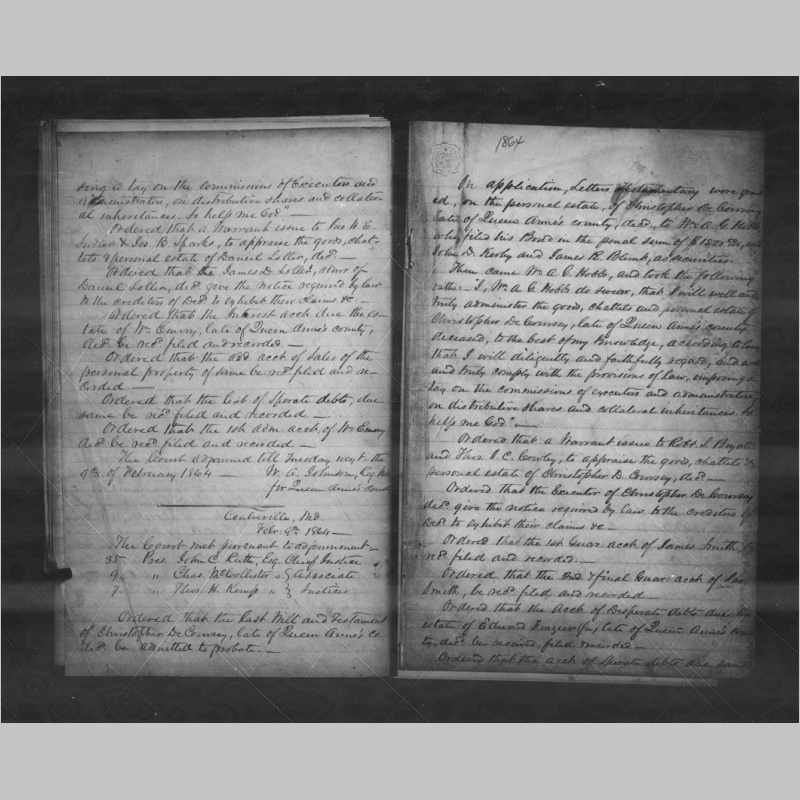 ing a tax on the commissions of Executors and
Administrators, on distributive shares and collater-
al inheritances. So help me God" —
Ordered that a Warrant issue to Jas. H. E.
& Jos. B. Sparks, to appraise the goods, chat-
tels & personal estate of Daniel Loller, decd. —
Ordered that the James D. Loller, of
Daniel Loller, decd. give the notice required by law
to the creditors of Decd. to exhibit their claims &c —
Ordered that the Interest acct. due the es-
tate of Wm. Emory, late of Queen Anne's county,
decd. be recd. filed and recorded. —
Ordered that the add. acct. of Sales of the
personal property of same be recd. filed and re-
corded —
Ordered that the List of Sperate debts, due
same be recd. filed and recorded —
Ordered that the 1st adm. acct. of Wm. Emory
decd. be recd. filed and recorded —
The Court adjourned till Tuesday next the
9th. of February 1864 — W. A. Johnson, Reg. Wills
for Queen Anne's County
Centreville, Md.
Feby. 9th. 1864 —
The Court met pursuant to adjournment —
35 Pres. John C. Ruth, Esq. Chief Justice
9 " Chas. McCollister " } Associate
7 " Thos. H. Kemp " } Justices
Ordered that the Last Will and Testament
of Christopher De Coursey, late of Queen Anne's Co.
decd. be admitted to probate. —
1864
On application, Letters testamentary were grant
ed, on the personal estate, of Christopher De Coursey
late of Queen Anne's county, decd., to Wm. A. C. Hobbs
who filed his Bond in the penal sum of
John D. Kerby and James R. as securities.
Then came Wm. A. C. Hobbs, and took the following
oath: I, Wm. A. C. Hobbs do swear, that I will well and
truly administer the goods, chattels and personal estate of
Christopher De Coursey, late of Queen Anne's county
deceased, to the best of my knowledge, according to law
that I will diligently and faithfully regard, and well
and truly comply with the provisions of Law, imposing a
tax on the commissions of executors and administrators
on distributive shares and collateral inheritances. So
help me God" —
Ordered that a Warrant issue to Robt. S. Bryan
and Thos. J. C. Cowley, to appraise the goods, chattels &
personal estate of Christopher D. Coursey, decd. —
Ordered that the Executor of Christopher De Coursey
decd. give the notice required by law to the creditors of
Decd. to exhibit their claims &c —
Ordered that the 1st Guar. acct. of James Smith be
recd. filed and recorded. —
Ordered that the 2nd & final Guar. acct. of Jas.
Smith, be recd. filed and recorded —
Ordered that the Acct. of Desperate debts due the
estate of Edward late of Queen Anne's coun
ty, decd. be received, filed, recorded —
Ordered that the acct. of Sperate debts due same